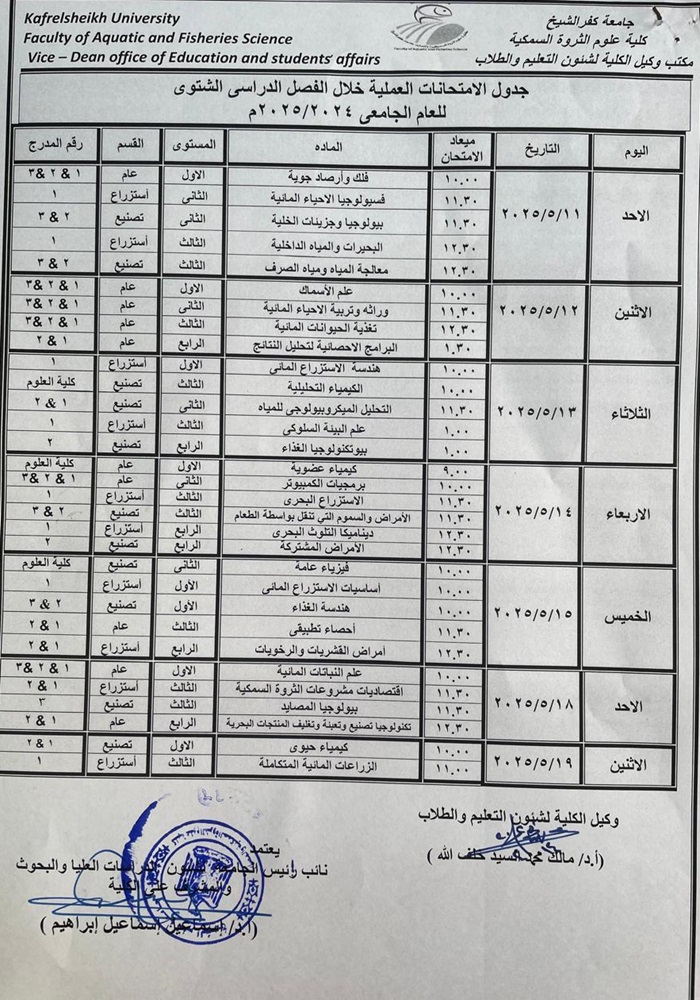 Kafrelsheikh University
Faculty of Aquatic and Fisheries Science
Vice – Dean office of Education and students' affairs
جامعة كفرالشيخ
كلية علوم الثروة السمكية
مكتب وكيل الكلية لشئون التعليم والطلاب
جدول الامتحانات العملية خلال الفصل الدراسى الشتوى
للعام الجامعى ٢٠٢٥/٢٠٢٤م
اليوم التاريخ ميعاد الامتحان الماده المستوى القسم رقم المدرج
الاحد ٢٠٢٥/٥/١١ ١٠.٠٠ فلك وأرصاد جوية الاول عام ١ & ٢ &٣
١١.٣٠ فسيولوجيا الاحياء المائية الثانى أستزراع ١
١١.٣٠ بيولوجيا وجزيئات الخلية الثانى تصنيع ٢ & ٣
١٢.٣٠ البحيرات والمياه الداخلية الثالث أستزراع ١
١٢.٣٠ معالجة المياه ومياه الصرف الثالث تصنيع ٢ & ٣
الاثنين ٢٠٢٥/٥/١٢ ١٠.٠٠ علم الأسماك الاول عام ١ & ٢ &٣
١١.٣٠ وراثه وتربية الاحياء المائية الثانى عام ١ & ٢ &٣
١٢.٣٠ تغذية الحيوانات المائية الثالث عام ١ & ٢ &٣
١.٣٠ البرامج الاحصائية لتحليل النتائج الرابع عام ١ & ٢
الثلاثاء ٢٠٢٥/٥/١٣ ١٠.٠٠ هندسة الاستزراع المائى الاول أستزراع ١
١٠.٠٠ الكيمياء التحليلية الثالث تصنيع كلية العلوم
١١.٣٠ التحليل الميكروبيولوجي للمياه الثانى تصنيع ١ & ٢
١.٠٠ علم البيئة السلوكي الثالث أستزراع ١
١.٠٠ بيوتكنولوجيا الغذاء الرابع تصنيع ٢
الاربعاء ٢٠٢٥/٥/١٤ ٩.٠٠ كيمياء عضوية الاول عام كلية العلوم
١٠.٠٠ برمجيات الكمبيوتر الثانى عام ١ & ٢ &٣
١١.٣٠ الاستزراع البحرى الثالث أستزراع ١
١١.٣٠ الأمراض والسموم التي تنقل بواسطة الطعام الثالث تصنيع ٢ & ٣
١٢.٣٠ ديناميكا التلوث البحرى الرابع أستزراع ١
١٢.٣٠ الأمراض المشتركة الرابع تصنيع ٢
الخميس ٢٠٢٥/٥/١٥ ١٠.٠٠ فيزياء عامة الثانى تصنيع كلية العلوم
١٠.٠٠ أساسيات الاستزراع المائى الأول أستزراع ١
١٠.٠٠ هندسة الغذاء الأول تصنيع ٢ & ٣
١١.٣٠ أحصاء تطبيقى الثالث عام ١ & ٢
١٢.٣٠ أمراض القشريات والرخويات الرابع أستزراع ١ & ٢
الاحد ٢٠٢٥/٥/١٨ ١٠.٠٠ علم النباتات المائية الاول عام ١ & ٢ &٣
١١.٣٠ اقتصاديات مشروعات الثروة السمكية الثالث أستزراع ١ & ٢
١١.٣٠ بيولوجيا المصايد الثالث تصنيع ٣
١٢.٣٠ تكنولوجيا تصنيع وتعبئة وتغليف المنتجات البحرية الرابع عام ١ & ٢
الاثنين ٢٠٢٥/٥/١٩ ١٠.٠٠ كيمياء حيوى الاول تصنيع ١ & ٢
١١.٠٠ الزراعات المائية المتكاملة الثالث أستزراع ١
وكيل الكلية لشئون التعليم والطلاب
(أ.د/ مالك محمد السيد خلف الله )
يعتمد
نائب رئيس الجامعة لشئون الدراسات العليا والبحوث
والمشرف على الكلية
(أ.د/ إسماعيل إسماعيل إبراهيم )